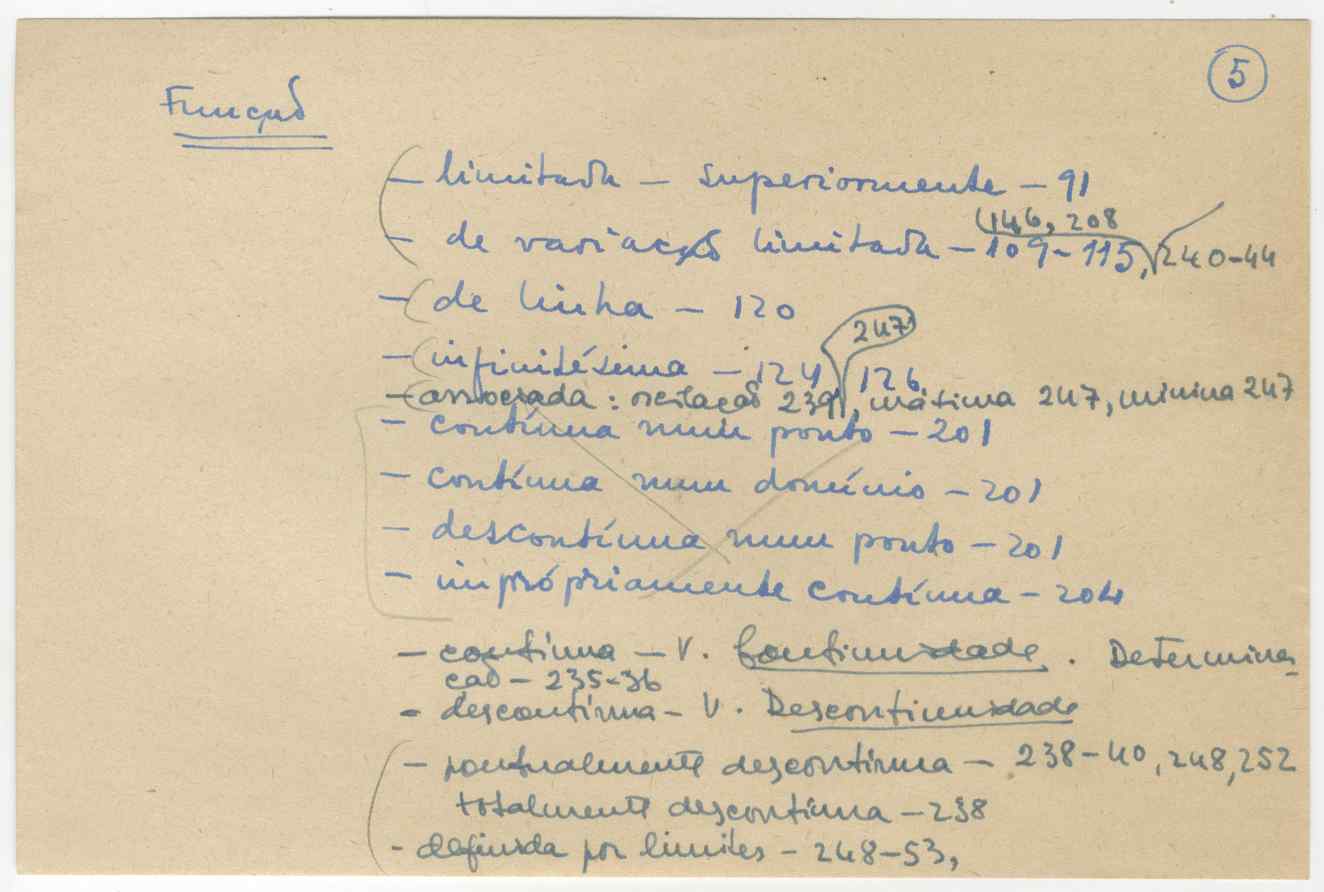 5
Função
— limitada — superiormente — 91
146, 208
— de variação limitada — 109-115, 240-44
— de linha — 120
247
— infinitésima — 124, 126
— associada: oscilação 239, máxima 247, mínima 247
— contínua num ponto — 201
— contínua num domínio — 201
— descontínua num ponto — 201
— impròpriamente contínua — 204
— contínua — V. Continuidade. Determina-
ção — 235-36
— descontínua — V. Descontinuidade
— pontualmente descontínua — 238-40, 248, 252
totalmente descontínua — 238
— definida por limites — 248-53,